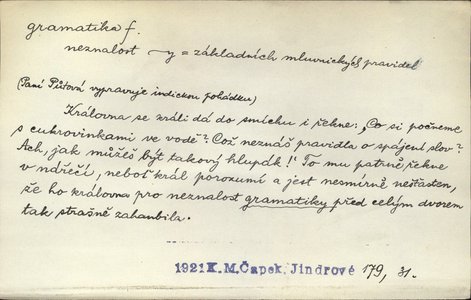 gramatika f.
neznalost ~y = základních mluvnických pravidel
(Paní Půtová vypravuje indickou pohádku)
Královna se zrálí dá do smíchu i řekne: „Co si počneme
s cukrovinkami ve vodě? Což neznáš pravidla o spájení slov?
Ach, jak můžeš být takový hlupák!" To mu patrně řekne
v nářečí, neboť král porozumí a jest nesmírně nešťasten,
že ho královna pro neznalost gramatiky před celým dvorem
tak strašně zahanbila.
1921 K. M. Čapek, Jindrové 179, 31.